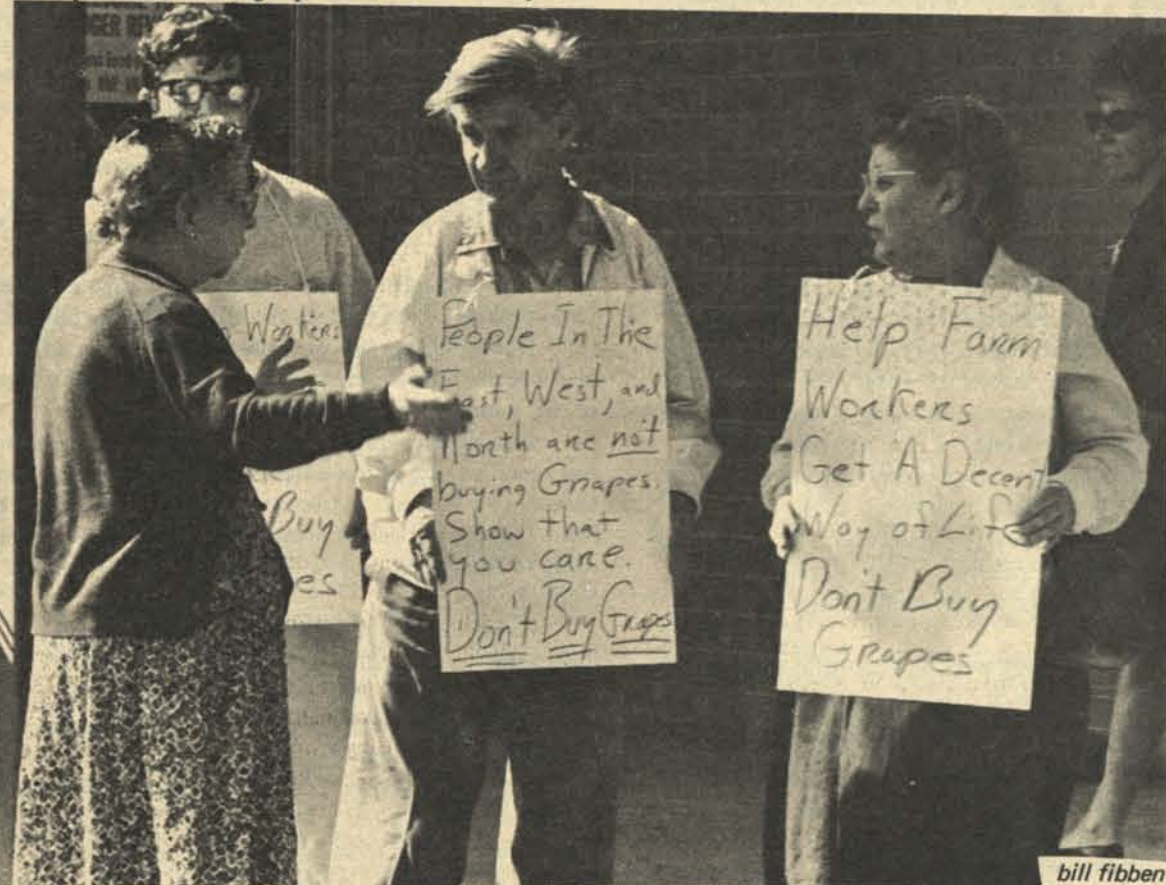 Workers
Buy
es
People In The
East, West, and
North are not
buying Grapes.
Show that
you care.
Don't Buy Grapes
Help Farm
Workers
Get A Decent
Way of Life
Don't Buy
Grapes
bill fibben